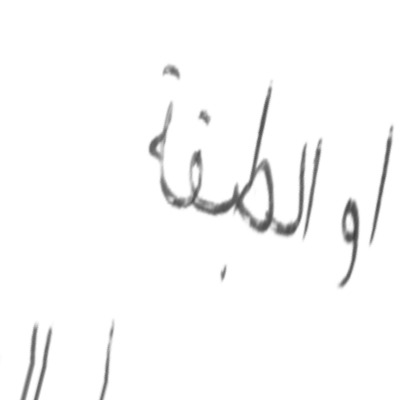 او الطبقة